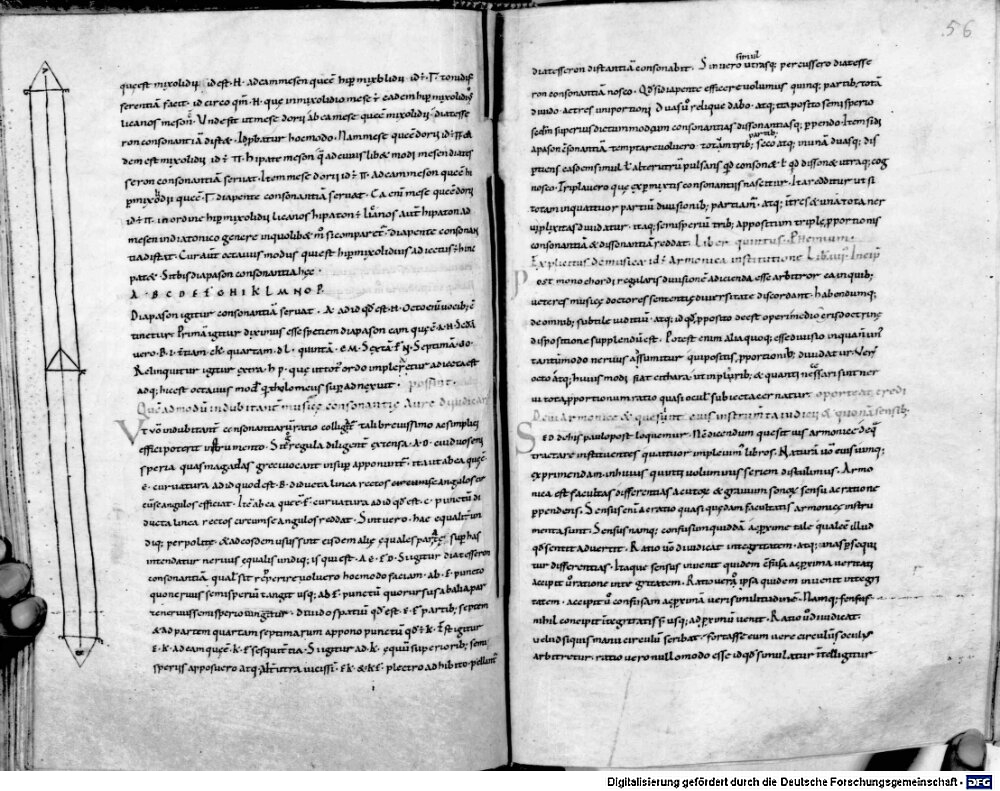 quę est mixolidii id est ·H· ad eam mesen quę ē hip mixolidii id ÷ ·Γ· toni dif
ferentiā facit. id circo qm̄ ·H· que in mixolidio mese ÷ eadem hip mixolidii
licanos meson ÷ Unde fit ut mese dorii ab ea mese que ē mixolidii diatesse
ron consonantiā distet.
dem est mixolidii id ÷ ·Π· hipate meson
seron consonantiā servat. Item mese dorii id ÷ ·Π· ad eam meson que ē hi
p mixolidii que ē ·Γ· diapente consonantiā servat.
id ÷ ·Π· in ordine hip mixolidii licanos hipaton ÷
mesen in diatonico genere in quolib& si comparet diapente consonan
tia distat. Cur aut octavus modus qui est hip mixolidius adiectus ÷ hinc
pat&. Sit bis diapason consonantia hęc.
A · B C D E F G H I K L M N O P.
Diapason igitur consonantiā servat. A· ad id qd est ·H· octo enī vocib; c̄
tinetur. Primā igitur diximus esse speciem diapason eam quę ē ·A·H· Secdā
vero ·B·I· ·c k· quartam ·d L· quintā ·e M· Sextā ·f N· Septimā ·G O·
Relinquitur igitur extra ·h p· que ut tot ordo impleretur adiecta est
adq; hic est octavus modus quē ptholomeus supadnexuit. possint.
Que admodū indubitanter musicę consonantię aure diiudicari
Ut vō indubitanter consonantiarū ratio colligatur tali brevissimo ac simplici
effici poterit instrumento. Sit regula diligenter extensa ·A·D· cui duo semi
speria quas magadas greci vocant insup apponunt. ita ut ab ea quę ē
·e· curvatura ad id quod est ·B· diducta linea rectos circum se angulos
efficiat. Itē ab ea quę ē ·f· curvatura ad id qd est ·c· punctū di
ducta linea rectos circum se angulos reddat. Sint vero hae equalit un
diq; perpolitę & ad eosdem usus sint eisdem alię equales paratę. sup has
intendatur nervus equalis undiq; is qui est ·A e f D· Si igitur diatesseron
consonantiā qualis sit repperire voluero hoc modo faciam. ab ·e· puncto
quo nervus semisperiū tangit usq; ab ·f· punctū quo rursus ab alia par
te nervus semisperio iungitur. divido spatiū qd est ·e·f· partib; septem
& ad partem quartam septimarum appono punctū qd ÷ k. Est igitur
·e·k· ad eam quę ē ·k·f· sesqui tertia. Si igitur ad ·k· equū superiorib; semi
sperius apposuero atq; alterutra vicissi ·e k· & ·k f· plectro adhibito pellantur
56
diatesseron distantiā consonabit. Sin vero simul utrasq; percussero diatesse
ron consonantiā nosco. Qd si diapente efficere volumus quinq; partib; totā
divido. ac tres uni portioni duas vō relique dabo. atq; ita posito semisperio
secdm superius dictum modum consonantias dissonantiasq; ppendo. Item si di
apason consonantiā temptare voluero. totam trib; seco partib; atq; in unā duasq; dis
ptiens easdem simul vł alterutrū pulsans qd conson& vł qd disson& utraq; cog
nosco. Tripla vero que ex pmixtis consonantiis nascitur. ita redditur ut si
totam in quattuor partiū divisionib; partiam. atq; in tres & una tota ner
vi plixitas dividatur. itaq; semisperiū trib; appositum triplę pportionis
consonantiā & dissonantiā reddat. Liber quintus. Phemium.
Explicit IIII de musica id ÷ Armonica institutione. Lib V Incip
Post monochordi regularis divisionē adicienda esse arbitror ea in quib;
veteres musicę doctores sententię diversitate discordant. habendumq;
de omnib; subtile iuditiū. atq; id qd pposito deest operi medio cris doctrinę
dispositione supplendū est. Potest enim alia quoq; esse divisio in qua nō unus
tantūmodo nervus assumitur qui positis pportionib; dividatur. Verū
octo atq; huius modi fiat cithara. ut in plurib; & quanti necessarii sint ner
vi tota pportionum ratio quasi oculis subiecta cernatur. oporteat credi
De vi armonicę & que sint eius instrumta iudicii & quonā sensib;
Sed de his paulo post loquemur. Nē dicendum que sit vis armonicę de q
tractare instituentes quattuor implevim libros. Naturā vō eius vimq;
exprimendam in huius quinti voluminis seriem distulimus. Armo
nica est facultas differentias acutox & gravium sonox sensu ac ratione
perpendens. Sensus enī ac ratio quasi quędam facultatis armonicę instru
menta sunt. Sensus namq; confusum quiddā ac pxime tale quale ē illud
qd sentit advertit. Ratio vō diiudicat integritatem. atq; imas psequi
tur differentias. Itaque sensus invenit quidem cfusa ac pxima veritati
accipit v ratione integritatem. Ratio vero ipsa quidem invenit integri
tatem. accipit v confusam ac pximā veri similitudinē. Namq; sensus
nihil concipit integritatis s; usq; ad pximū venit. Ratio vō diiudicat.
velud si quis manu circulū scribat. fortasse eum vere circulū oculus
arbitretur. ratio vero nullo modo esse id qd simulatur intelligitur
Digitalisierung gefördert durch die Deutsche Forschungsgemeinschaft - DFG